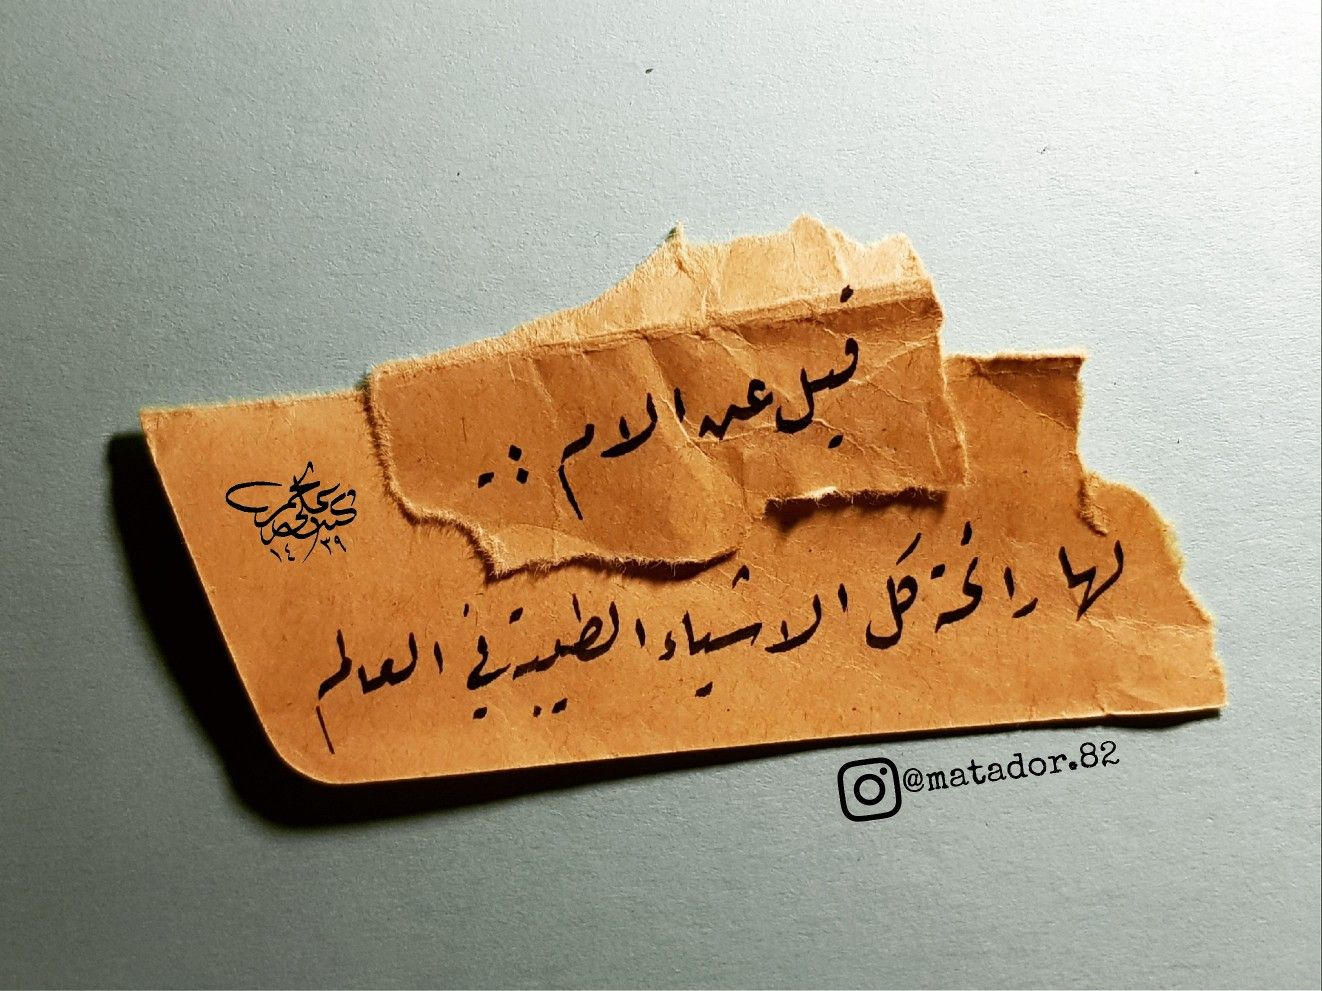 قيل عن الام ..:
لها رائحة كل الاشياء الطيبة في العالم
١٤٣٩
@matador.82